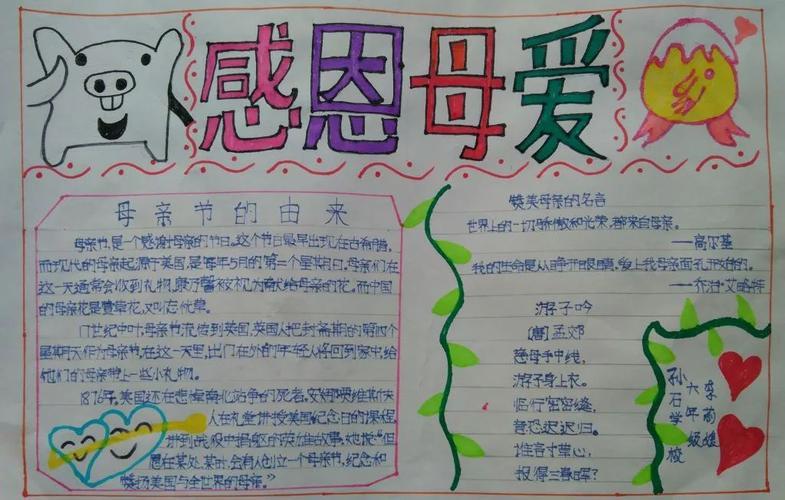 感恩母爱
母亲节的由来
母亲节,是一个感谢母亲的节日。这个节日最早出现在古希腊。
而现代的母亲起源于美国,是每年5月的第二个星期日。母亲们在
这一天通常会收到礼物,康乃馨被视为献给母亲的花。而中国
的母亲花是萱草花,又叫忘忧草。
17世纪中叶母亲节流传到英国,英国人把封斋期的第四个
星期天作为母亲节,在这一天里,出门在外的年轻人将回到家中,给
他们的母亲带上一些小礼物。
1876年,美国还在悲悼南北战争的死者,安娜贾维斯夫
人在礼堂讲授美国纪念日的课程,
讲到战役中捐躯的英雄故事,她说“但
愿在某处,某时,会有人创立一个母亲节,纪念和
赞扬美国与全世界的母亲。”
赞美母亲的名言
世界上的一切骄傲和光荣,都来自母亲。
——高尔基
我的生命是从睁开眼睛,爱上我母亲面孔开始的。
——乔治·艾略特
游子吟
(唐)孟郊
慈母手中线,
游子身上衣。
临行密密缝,
意恐迟迟归。
谁言寸草心,
报得三春晖?
孙石学校
六年级